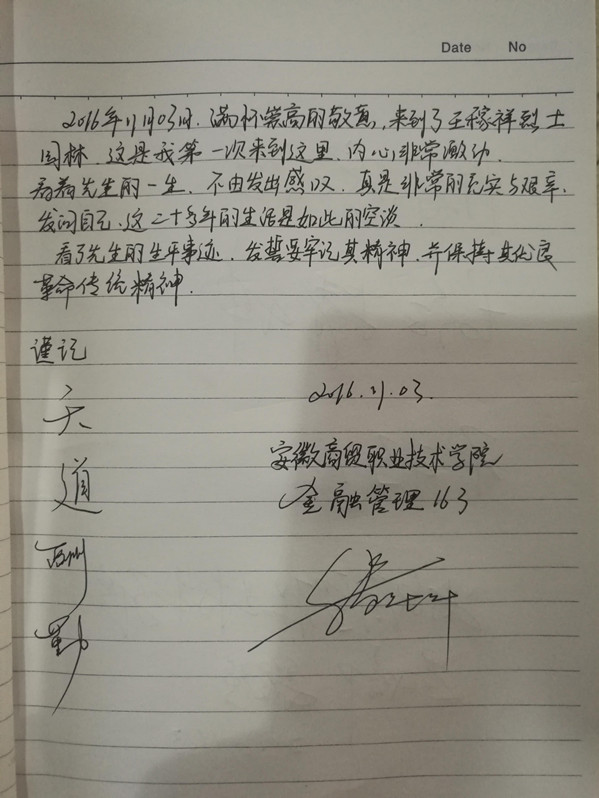 Date No
2016年11月03日.满怀崇高的敬意,来到了王稼祥烈士
园林.这是我第一次来到这里.内心非常激动.
看着先生的一生.不由发出感叹.真是非常的充实与艰辛.
发问自己.这二十多年的生活是如此的空谈.
看了先生的生平事迹.发誓要牢记其精神.并保持其优良
革命传统精神.
谨记
天道酬勤
2016.11.03.
安徽商贸职业技术学院
金融管理163